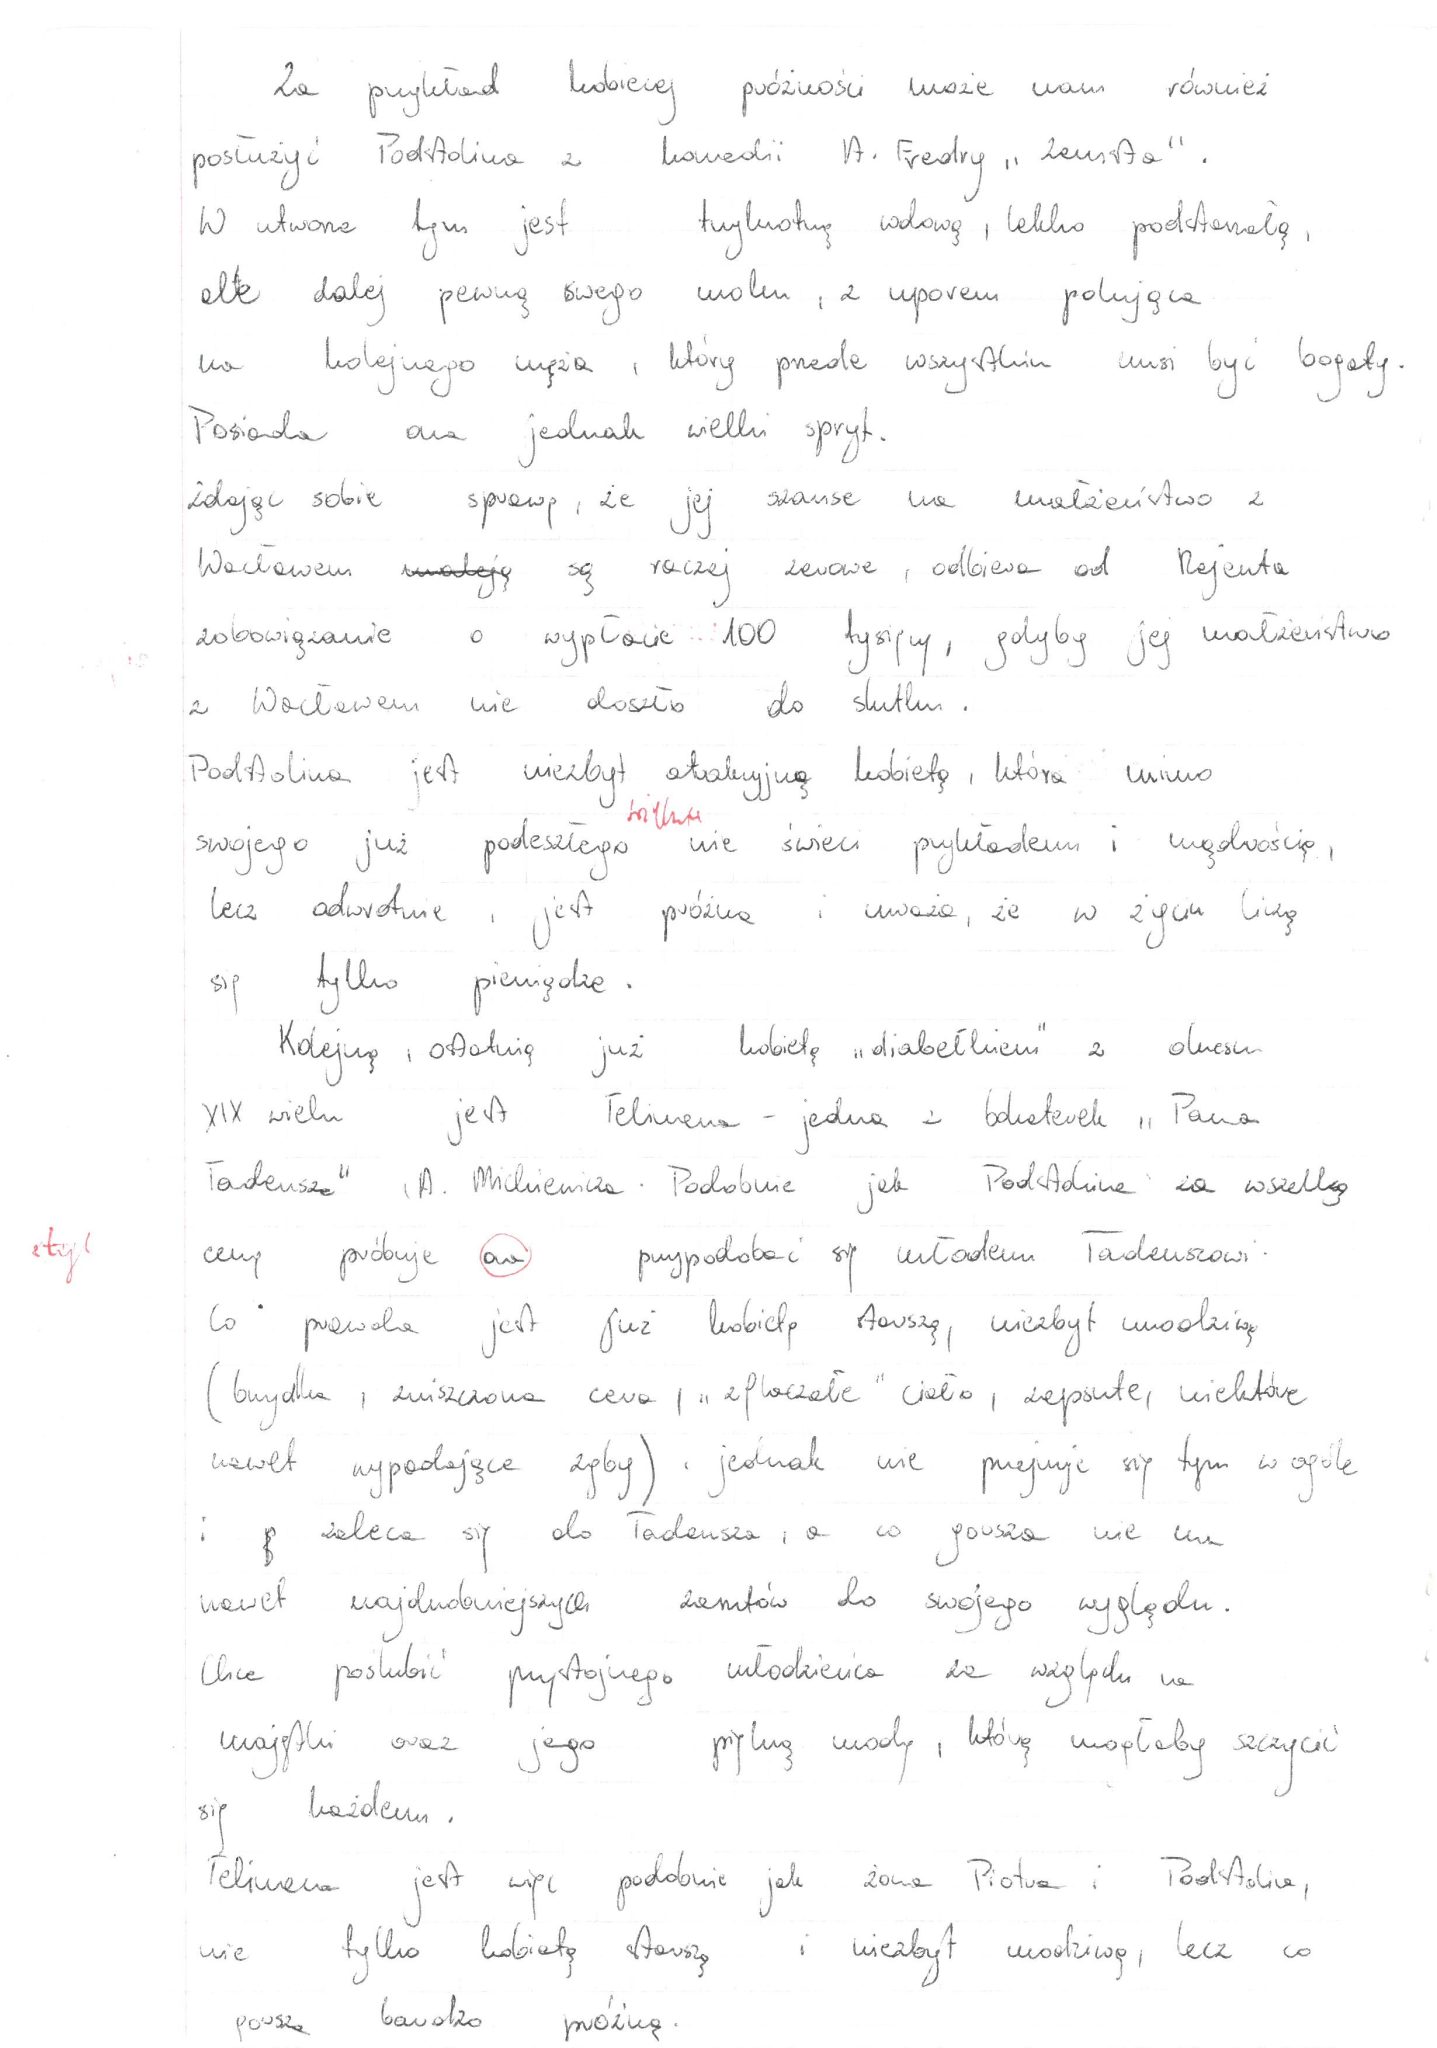 Za przykład kobiecej próżności może nam również
posłużyć Podstolina z komedii A. Fredry „Zemsta".
W utworze tym jest trzykrotną wdową, lekko podstarzałą,
ale dalej pewną swego uroku, z uporem polująca
na kolejnego męża, który przede wszystkim musi być bogaty.
Posiada ona jednak wielki spryt.
Zdając sobie sprawę, że jej szanse na małżeństwo z
Wacławem maleją są raczej zerowe, odbiera od Rejenta
zobowiązanie o wypłacie 100 tysięcy, gdyby jej małżeństwo
z Wacławem nie doszło do skutku.
Podstolina jest niezbyt atrakcyjną kobietą, która mimo
swojego już podeszłego nie świeci przykładem i mądrością,
lecz odwrotnie, jest próżna i uważa, że w życiu liczą
się tylko pieniądze.
Kolejną, ostatnią już kobietą „diabełkiem" z okresu
XIX wieku jest Telimena - jedna z bohaterek „Pana
Tadeusza" A. Mickiewicza. Podobnie jak Podstolina za wszelką
styl
cenę próbuje ona przypodobać się młodemu Tadeuszowi.
Co prawda jest już kobietą starszą, niezbyt urodziwą
(brzydka, zniszczona cera, „sflaczałe" ciało, zepsute, niektóre
nawet wypadające zęby), jednak nie przejmuje się tym w ogóle
i zaleca się do Tadeusza, a co gorsza nie ma
nawet najdrobniejszych zarzutów do swojego wyglądu.
Chce poślubić przystojnego młodzieńca ze względu na
majątki oraz jego piękną urodę, którą mogłaby szczycić
się każdemu.
Telimena jest więc podobnie jak żona Piotra i Podstolina,
nie tylko kobietą starszą i niezbyt urodziwą, lecz co
gorsza bardzo próżną.